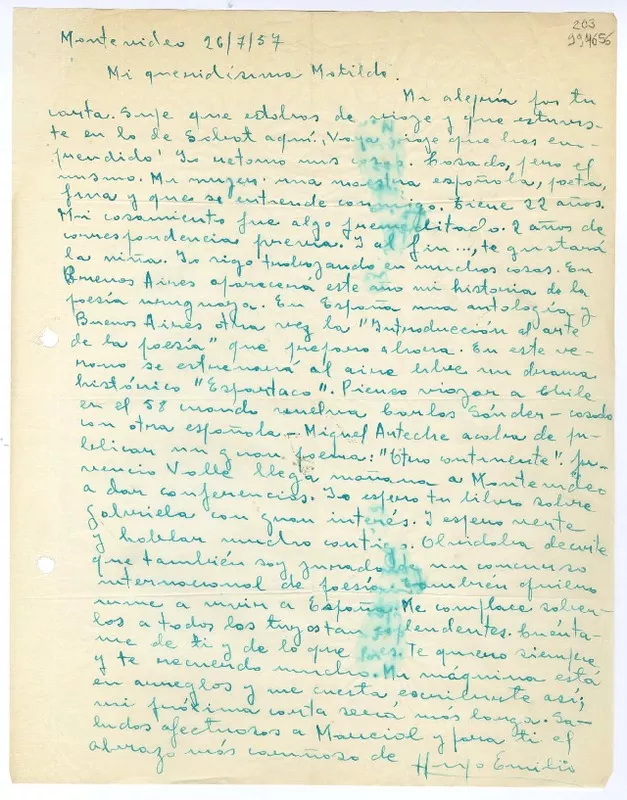 203
994656
Montevideo 26/7/57
Mi queridísima Matilde.
Mi alegría por tu
carta. Supe que estabas de viaje y que estuvis-
te en lo de Selvot aquí. Vaya viaje que has em-
prendido! Yo retomo mis cosas. Casado, pero el
mismo. Mi mujer: una maestra española, poeta,
fina y que se entiende conmigo. Tiene 22 años.
Mi casamiento fue algo premeditado. 2 años de
correspondencia previa. Y al fin..., te gustará
la niña. Yo sigo trabajando en muchas cosas. En
Buenos Aires aparecerá este año mi historia de la
poesía uruguaya. En España una antología y
Buenos Aires otra vez la "Introducción al arte
de la poesía" que preparo ahora. En este ve-
rano se estrenará al aire libre un drama
histórico "Espartaco". Pienso viajar a Chile
en el 58 cuando vuelva Carlos Sánder - casado
con otra española - Miguel Arteche acaba de pu-
blicar un gran poema: "Otro continente". Ju-
vencio Valle llega mañana a Montevideo
a dar conferencias. Yo espero tu libro sobre
Gabriela con gran interés. Y espero verte
y hablar mucho contigo. Olvidaba decirte
que también soy jurado de un concurso
internacional de poesía. También quiero
irme a vivir a España. Me complace saber-
los a todos los tuyos tan esplendentes. Cuénta-
me de ti y de lo que haces. Te quiero siempre
y te recuerdo mucho. Mi máquina está
en arreglos y me cuesta escribirte así;
mi próxima carta será más larga. Sa-
ludos afectuosos a Marcial y para ti el
abrazo más cariñoso de Hugo Emilio